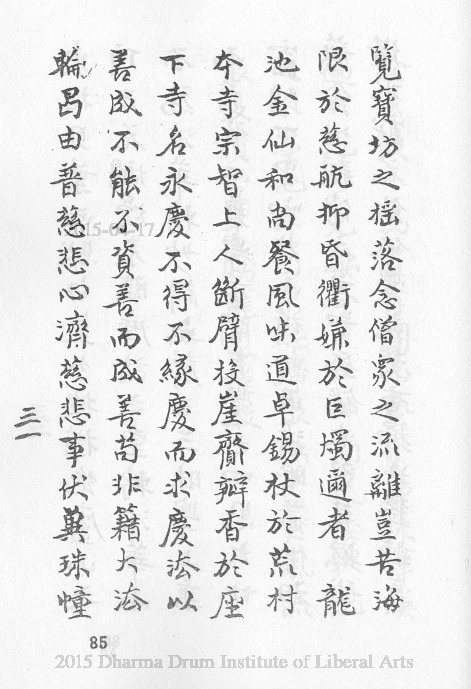 覽寶坊之摇落念僧衆之流離豈苦海
限於慈航抑昏衢嫌於巨燭邇者 龍
池金仙和尚餐風味道卓錫杖於荒村
本寺宗智上人斷臂投崖齎瓣香於座
下寺名永慶不得不緣慶而求慶法以
善成不能不資善而成善苟非籍大法
輪曷由普慈悲心濟慈悲事伏冀珠幢
三一
85
2015 Dharma Drum Institute of Liberal Arts